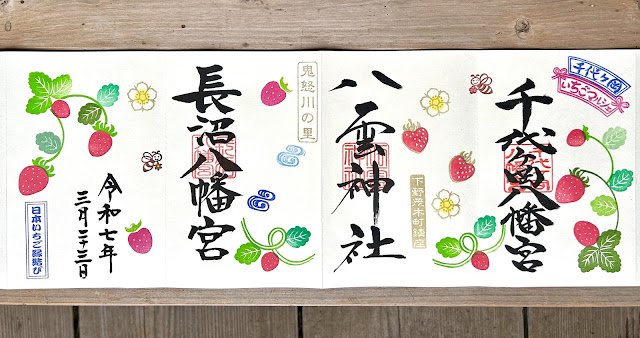 千代ヶ岡
いちごマルシェ
千代魚八幡宮
下野茂木町鎮座
八雲神社
鬼怒川の里
長沼八幡宮
令和七年
三月二十三日
日本いちご縁結び